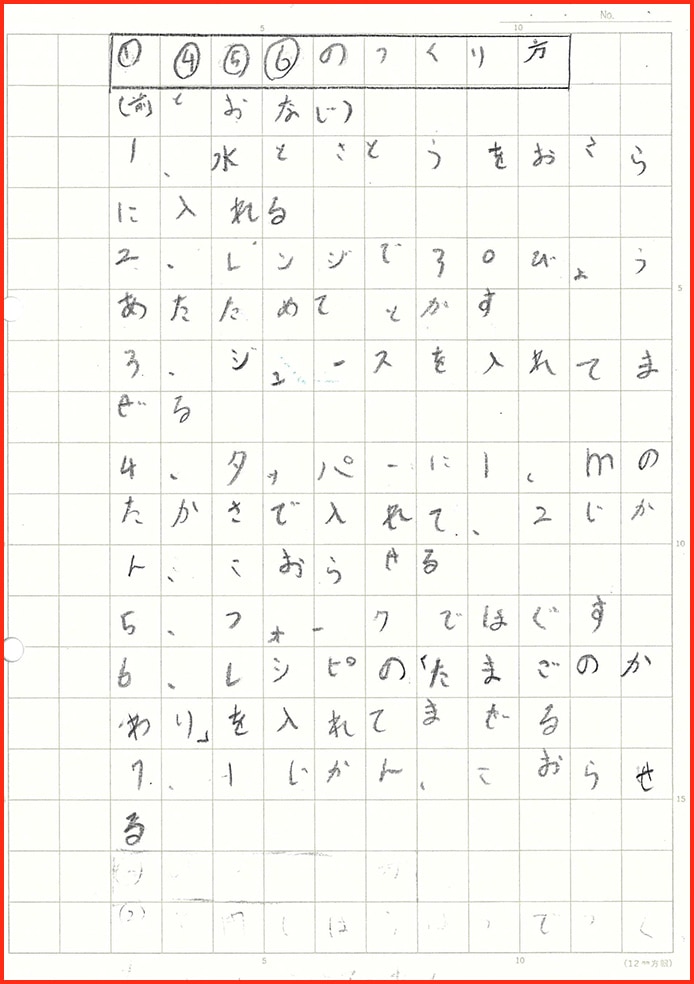 No.
5 10
①④⑤⑥のつくり方
(前とおなじ)
1、水とさとうをおさら
に入れる
2、レンジで30びょう
あたためてとかす
3、ジュースを入れてま
ぜる
4、タッパーに1、mの
たかさで入れて、2じか
ん、こおらせる
5、フォークでほぐす
6、レシピの「たまごのか
わり」を入れてまぜる
7、1じかん、こおらせ
る
5
10
15
5 10
(12㎜方眼)